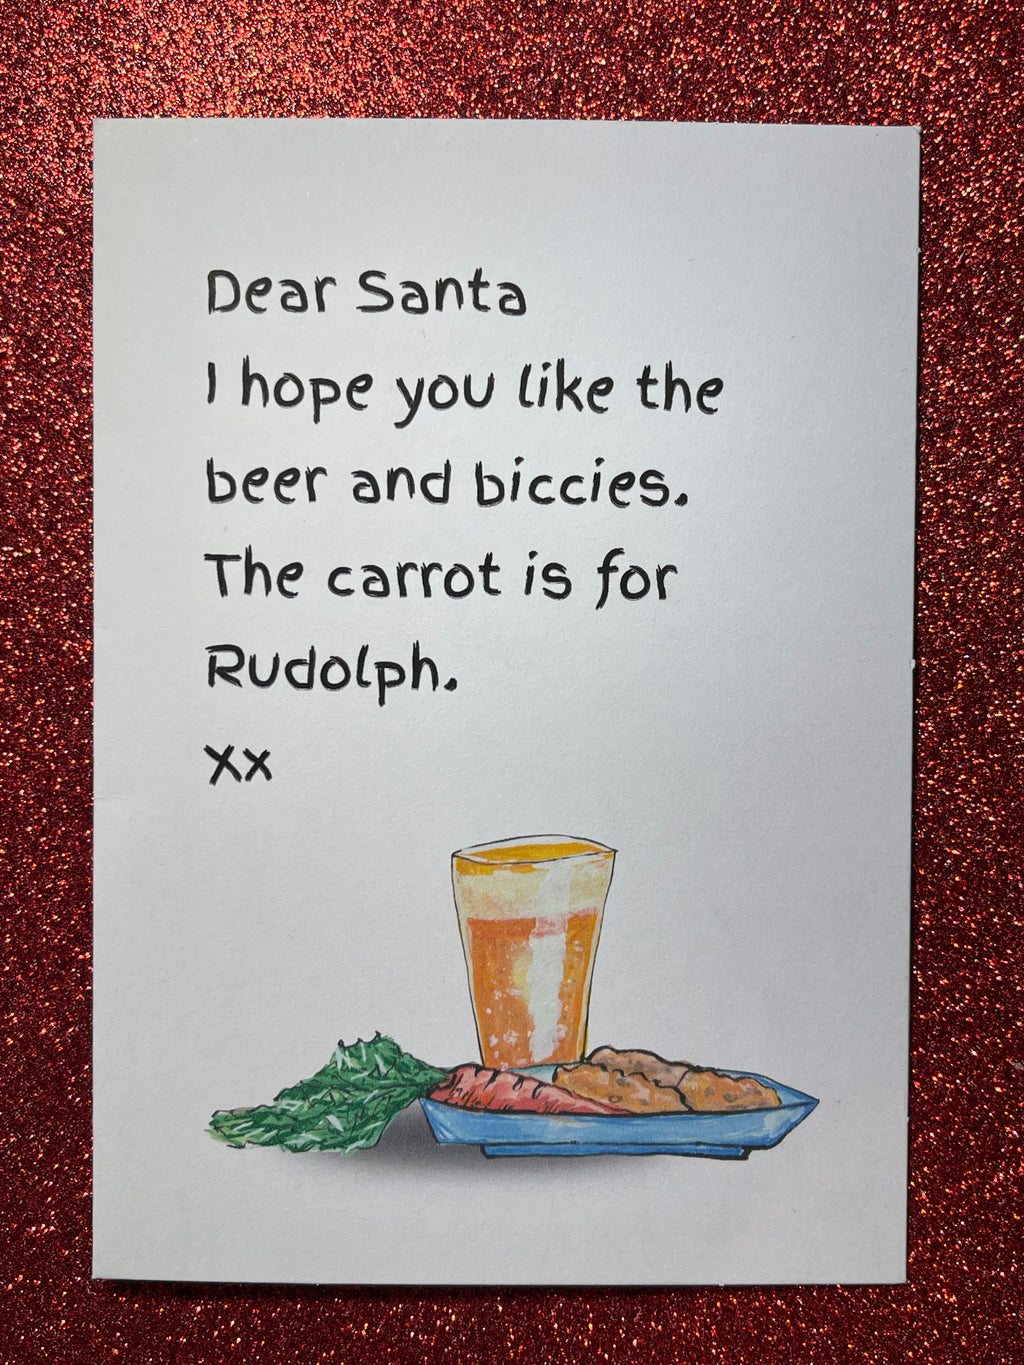 Dear Santa
I hope you like the
beer and biccies.
The carrot is for
Rudolph.
Xx